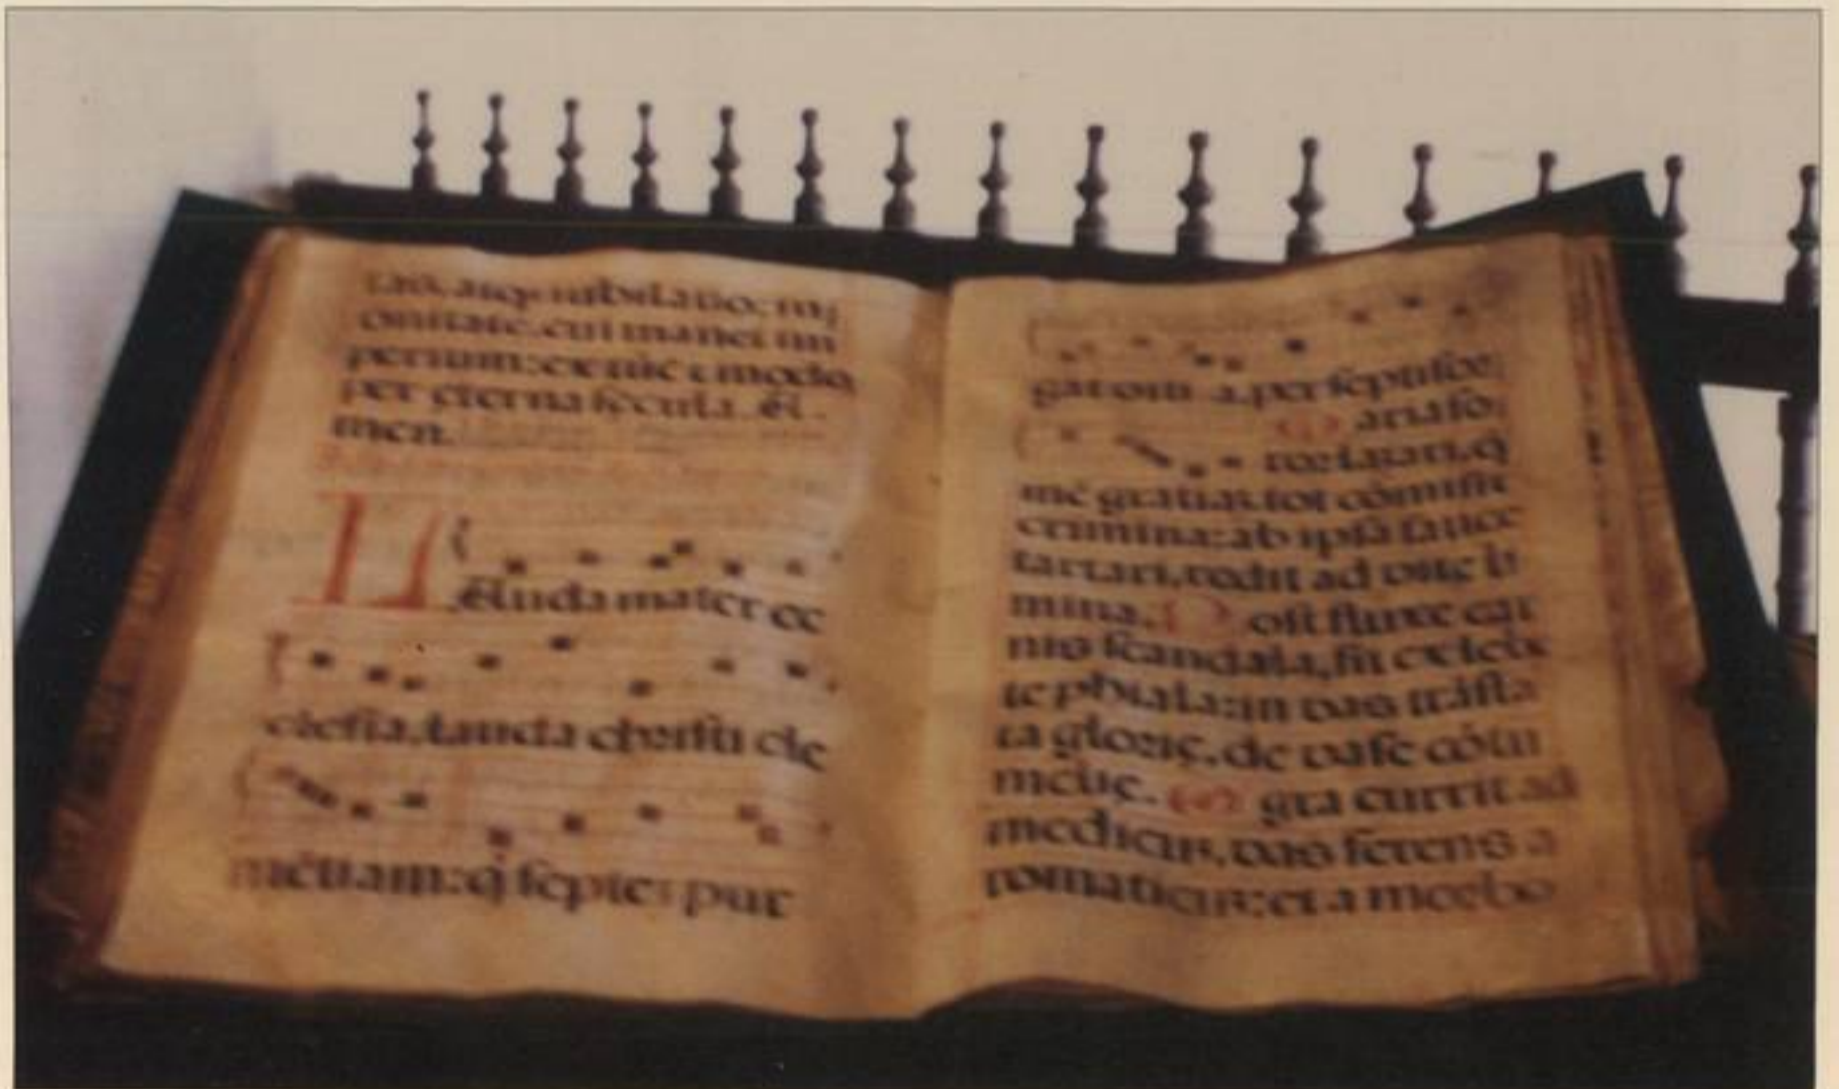 perium: ex nūc ⁊ modo,
per eterna secula. A
men.
LAuda mater ec
clesia, lauda christi cle
mētiam: q̄ septē pur
gat vitia, per septifor
Maria so
ror lazari, q̄
mē gratiar. tot cōmisit
crimina: ab ipsa fauce
tartari, redit ad vitę li
mina. Post fluxę car
nis scandala, fit ex lebe
te phiala: in vas trāsla
ta glorię, de vase cōtu
męlię. Ęgra currit ad
medicum, vas ferens a
romaticum: et a morbo